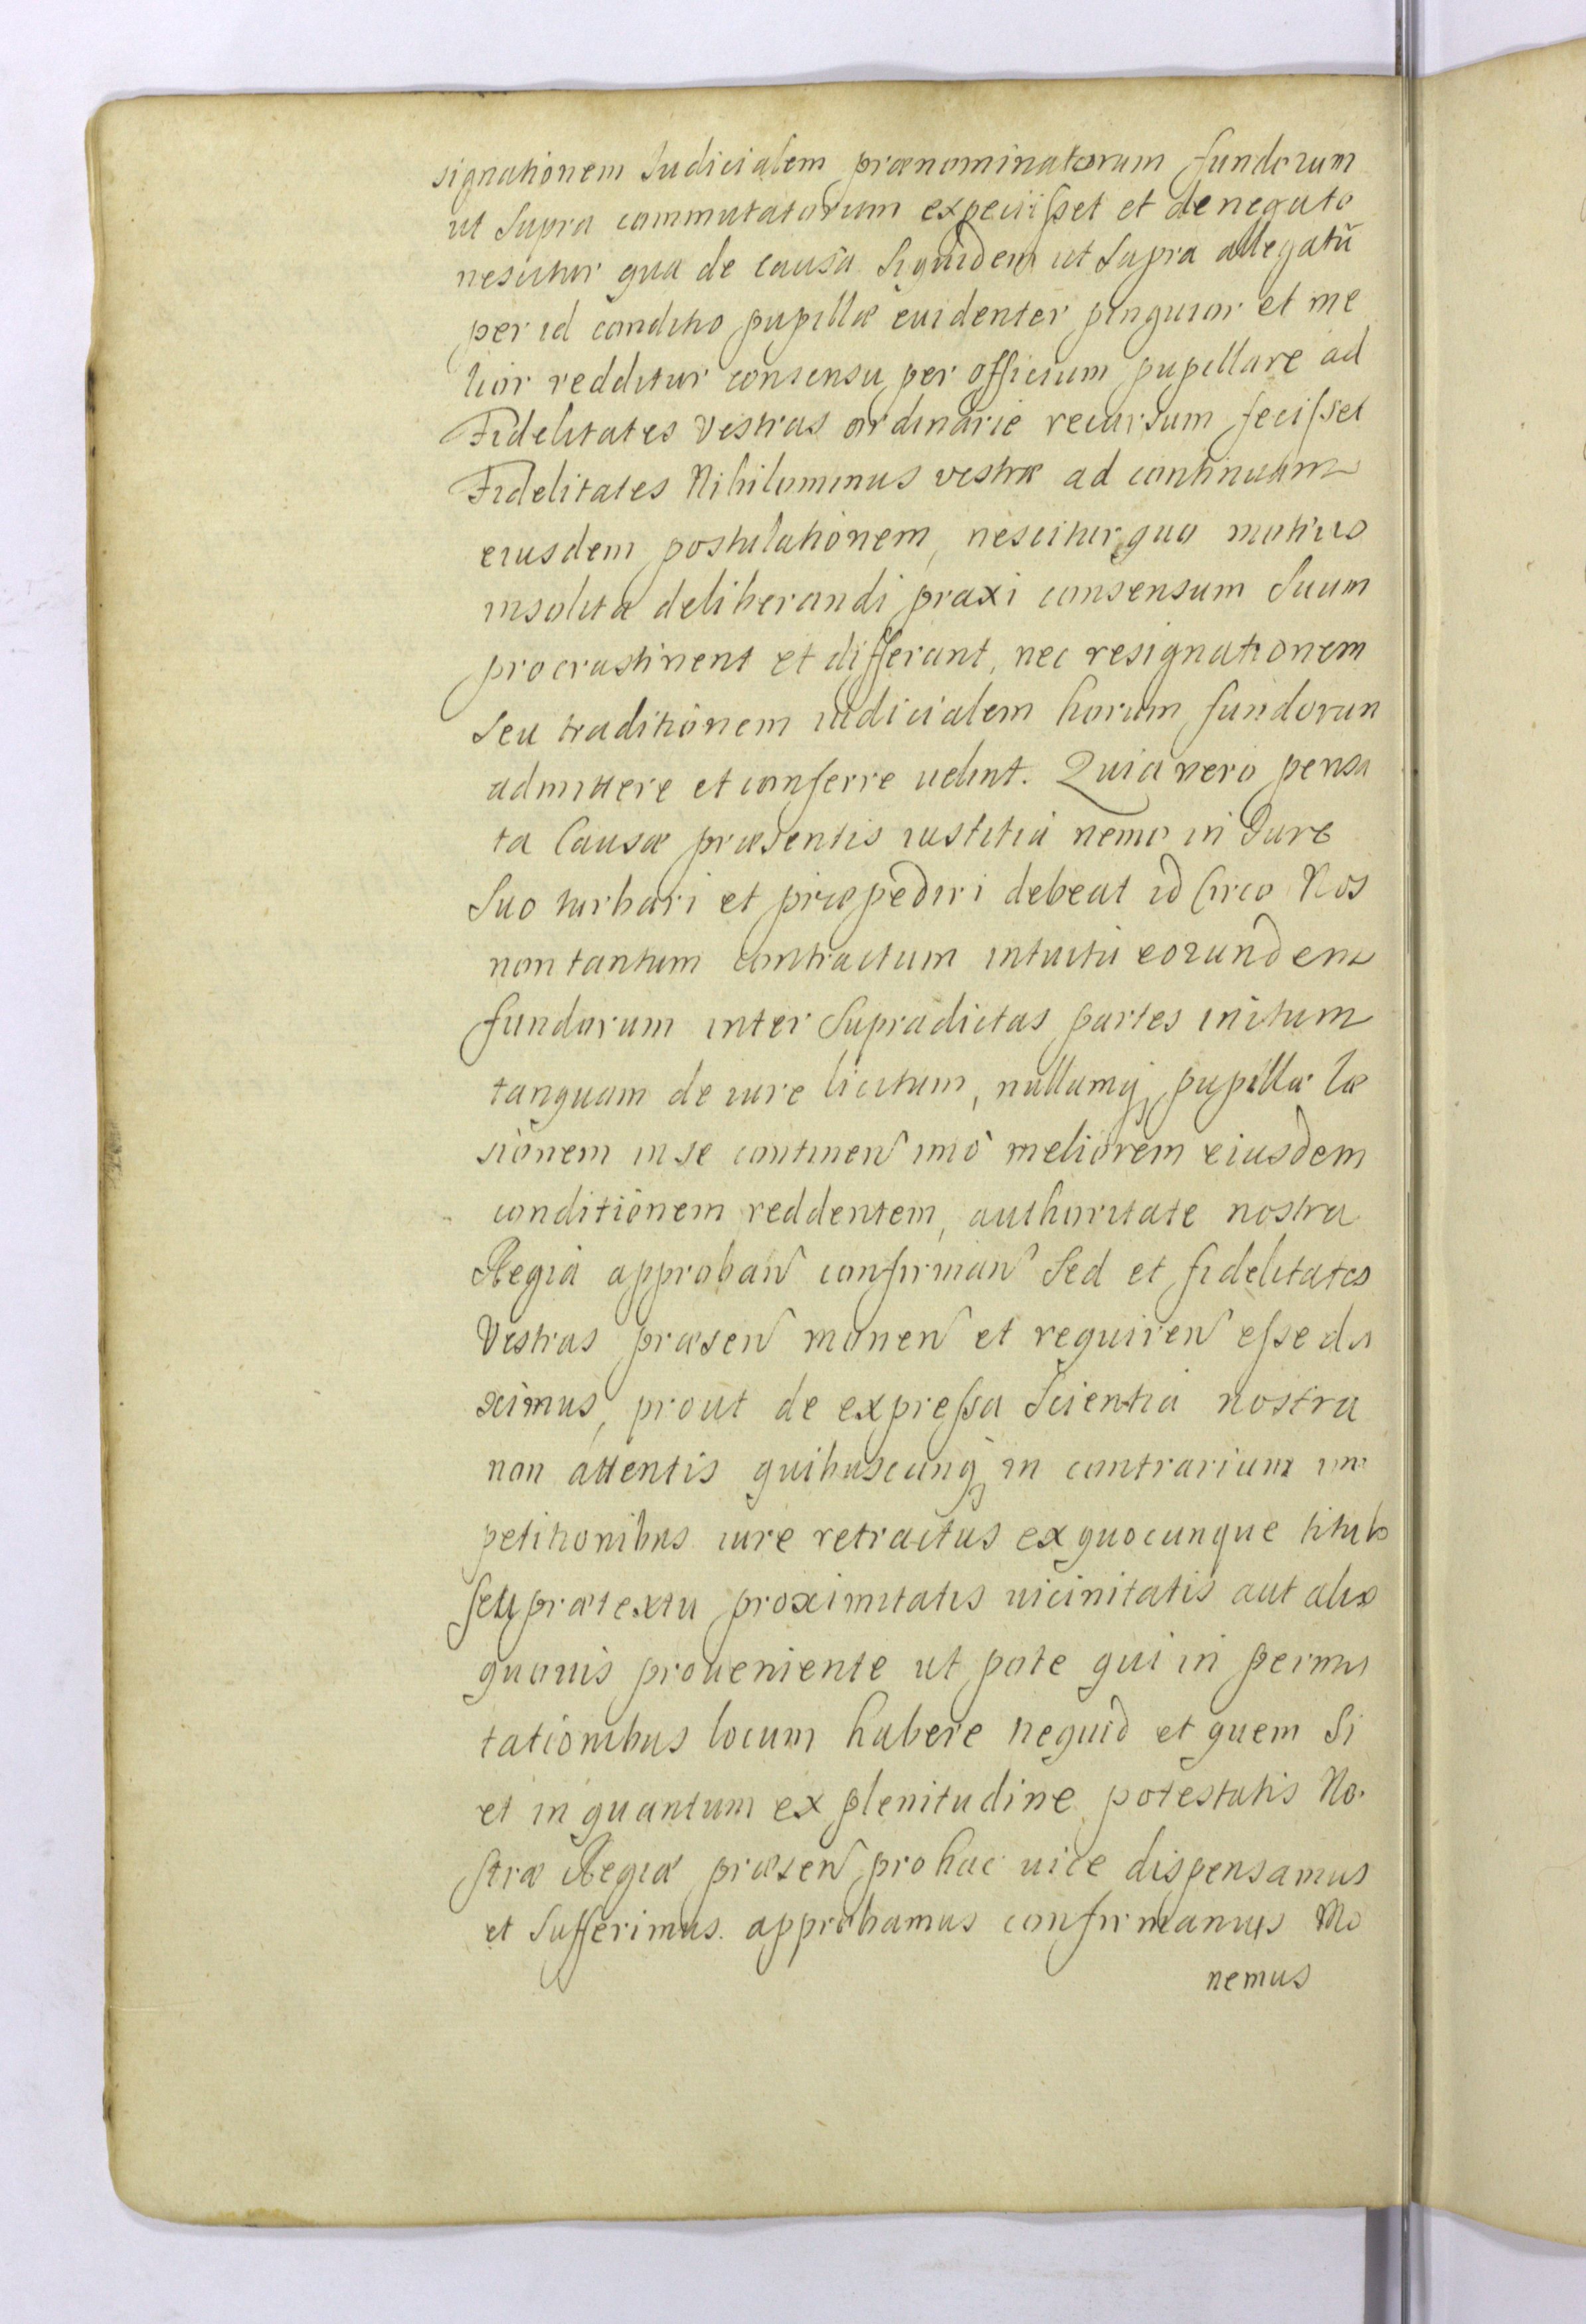 signationem Iudicialem prænominatorum fundorum
ut Supra commutatorum expeciisset et denegato
nescitur qua de causa Siquidem ut Supra allegatũ
per id conditio pupillæ euidenter pinguior et me
lior redditur consensu per officium pupillare ad
Fidelitates Vestras ordinarie recursum fecisset
Fidelitates Nihilominus vestræ ad continuam
eiusdem postulationem, nescitur quo motiuo
insolita deliberandi praxi consensum Suum
procrastinent et differant, nec resignationem
Seu traditionem iudicialem horum fundorum
admittere et conferre uelint. Quia vero pensa
ta Causæ præsentis iustitia nemo in Iure
Suo turbari et præpediri debeat id Circo Nos
non tantum contractum intuitu eorundem
fundorum inter Supradictas partes initum
tanquam de iure licitum, nullamq; pupillæ læ
sionem in se continen imò meliorem eiusdem
conditionem reddentem, authoritate nostra
Regia approban confirman Sed et fidelitates
Vestras præsen monen et requiren esse du
ximus, prout de expressa Scientia nostra
non attentis quibuscunq; in contrarium im
petitionibus iure retractus ex quocunque titulo
seu prætextu proximitatis uicinitatis aut alio
quouis proueniente ut pote qui in permu
tationibus locum habere nequid et quem Si
et in quantum ex plenitudine potestatis No.
stræ Regiæ præsen pro hac uice dispensamus
et Sufferimus. approbamus confirmamus Mo
nemus